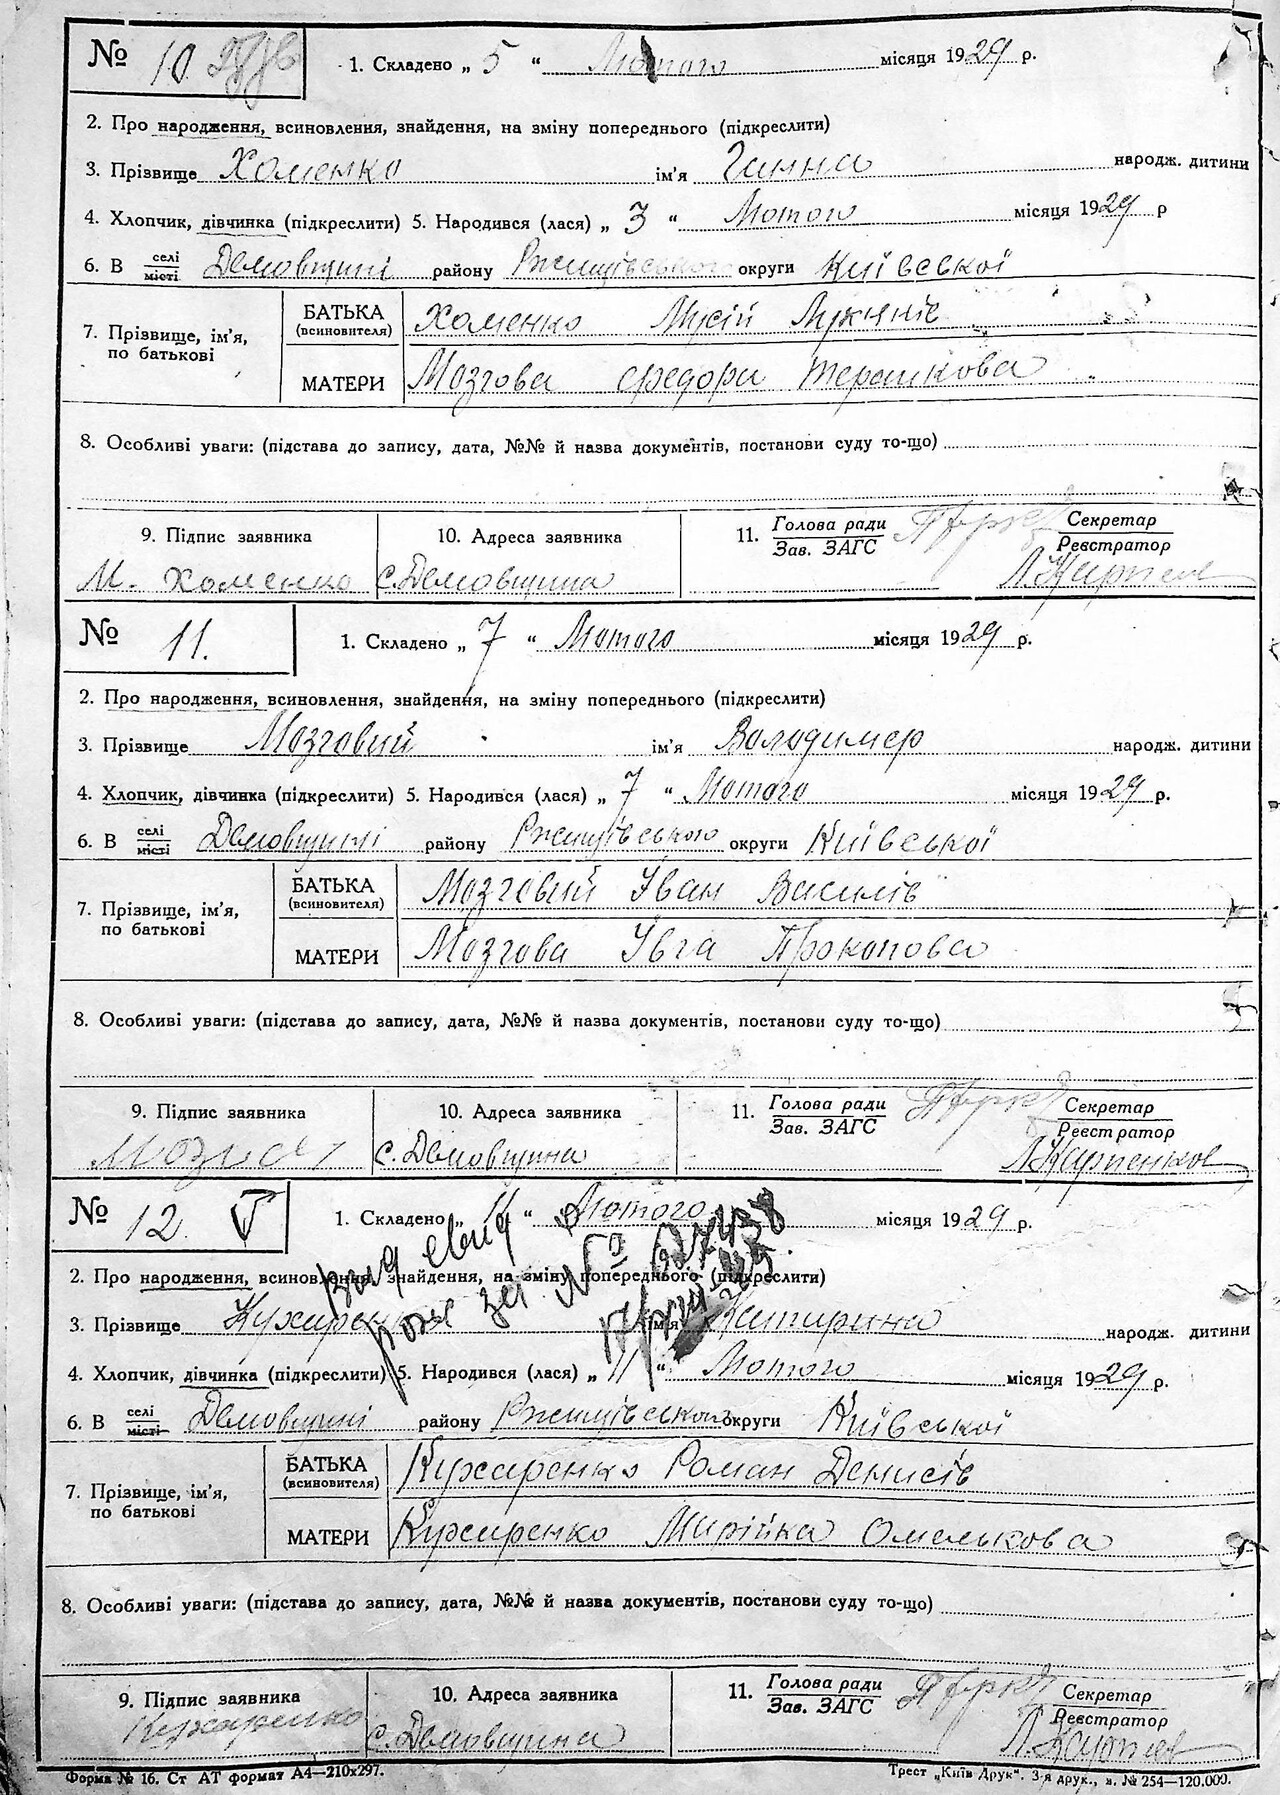 № 10. 1. Складено „ 5 “ Лютого місяця 1929 р.
2. Про народження, всиновлення, знайдення, на зміну попереднього (підкреслити)
3. Прізвище Хоменко ім'я Ганна народж. дитини
4. Хлопчик, дівчинка (підкреслити) 5. Народився (лася) „ 3 “ Лютого місяця 1929 р
6. В селі місті Демовщині району Ржищівського округи Київської
7. Прізвище, ім'я, по батькові
БАТЬКА (всиновителя) Хоменко Мусій Лукянів
МАТЕРИ Мозгова Федора
8. Особливі уваги: (підстава до запису, дата, №№ й назва документів, постанови суду то-що)
9. Підпис заявника 10. Адреса заявника 11. Голова ради Зав. ЗАГС Секретар Реєстратор
М. Хоменко с. Демовщина Л. Карпенко
№ 11. 1. Складено „ 7 “ Лютого місяця 1929 р.
2. Про народження, всиновлення, знайдення, на зміну попереднього (підкреслити)
3. Прізвище Мозговий ім'я Володимер народж. дитини
4. Хлопчик, дівчинка (підкреслити) 5. Народився (лася) „ 7 “ Лютого місяця 1929 р.
6. В селі місті Демовщині району Ржищівського округи Київської
7. Прізвище, ім'я, по батькові
БАТЬКА (всиновителя) Мозговий Іван Василів
МАТЕРИ Мозгова Івга Прокопова
8. Особливі уваги: (підстава до запису, дата, №№ й назва документів, постанови суду то-що)
9. Підпис заявника 10. Адреса заявника 11. Голова ради Зав. ЗАГС Секретар Реєстратор
с. Демовщина Л. Карпенко
№ 12. 1. Складено „ 11 “ Лютого місяця 1929 р.
2. Про народження, всиновлення, знайдення, на зміну попереднього (підкреслити)
3. Прізвище Кухаренко ім'я Катирина народж. дитини
4. Хлопчик, дівчинка (підкреслити) 5. Народився (лася) „ 11 “ Лютого місяця 1929 р.
6. В селі місті Демовщині району Ржищівського округи Київської
7. Прізвище, ім'я, по батькові
БАТЬКА (всиновителя) Кухаренко Роман Денисів
МАТЕРИ Кухаренко Марійка Омелькова
8. Особливі уваги: (підстава до запису, дата, №№ й назва документів, постанови суду то-що)
9. Підпис заявника 10. Адреса заявника 11. Голова ради Зав. ЗАГС Секретар Реєстратор
Кухаренко с. Демовщина Л. Карпенко
Форма № 16. Ст АТ формат А4—210х297. Трест „Київ Друк“. 3-я друк., з. № 254—120.000.